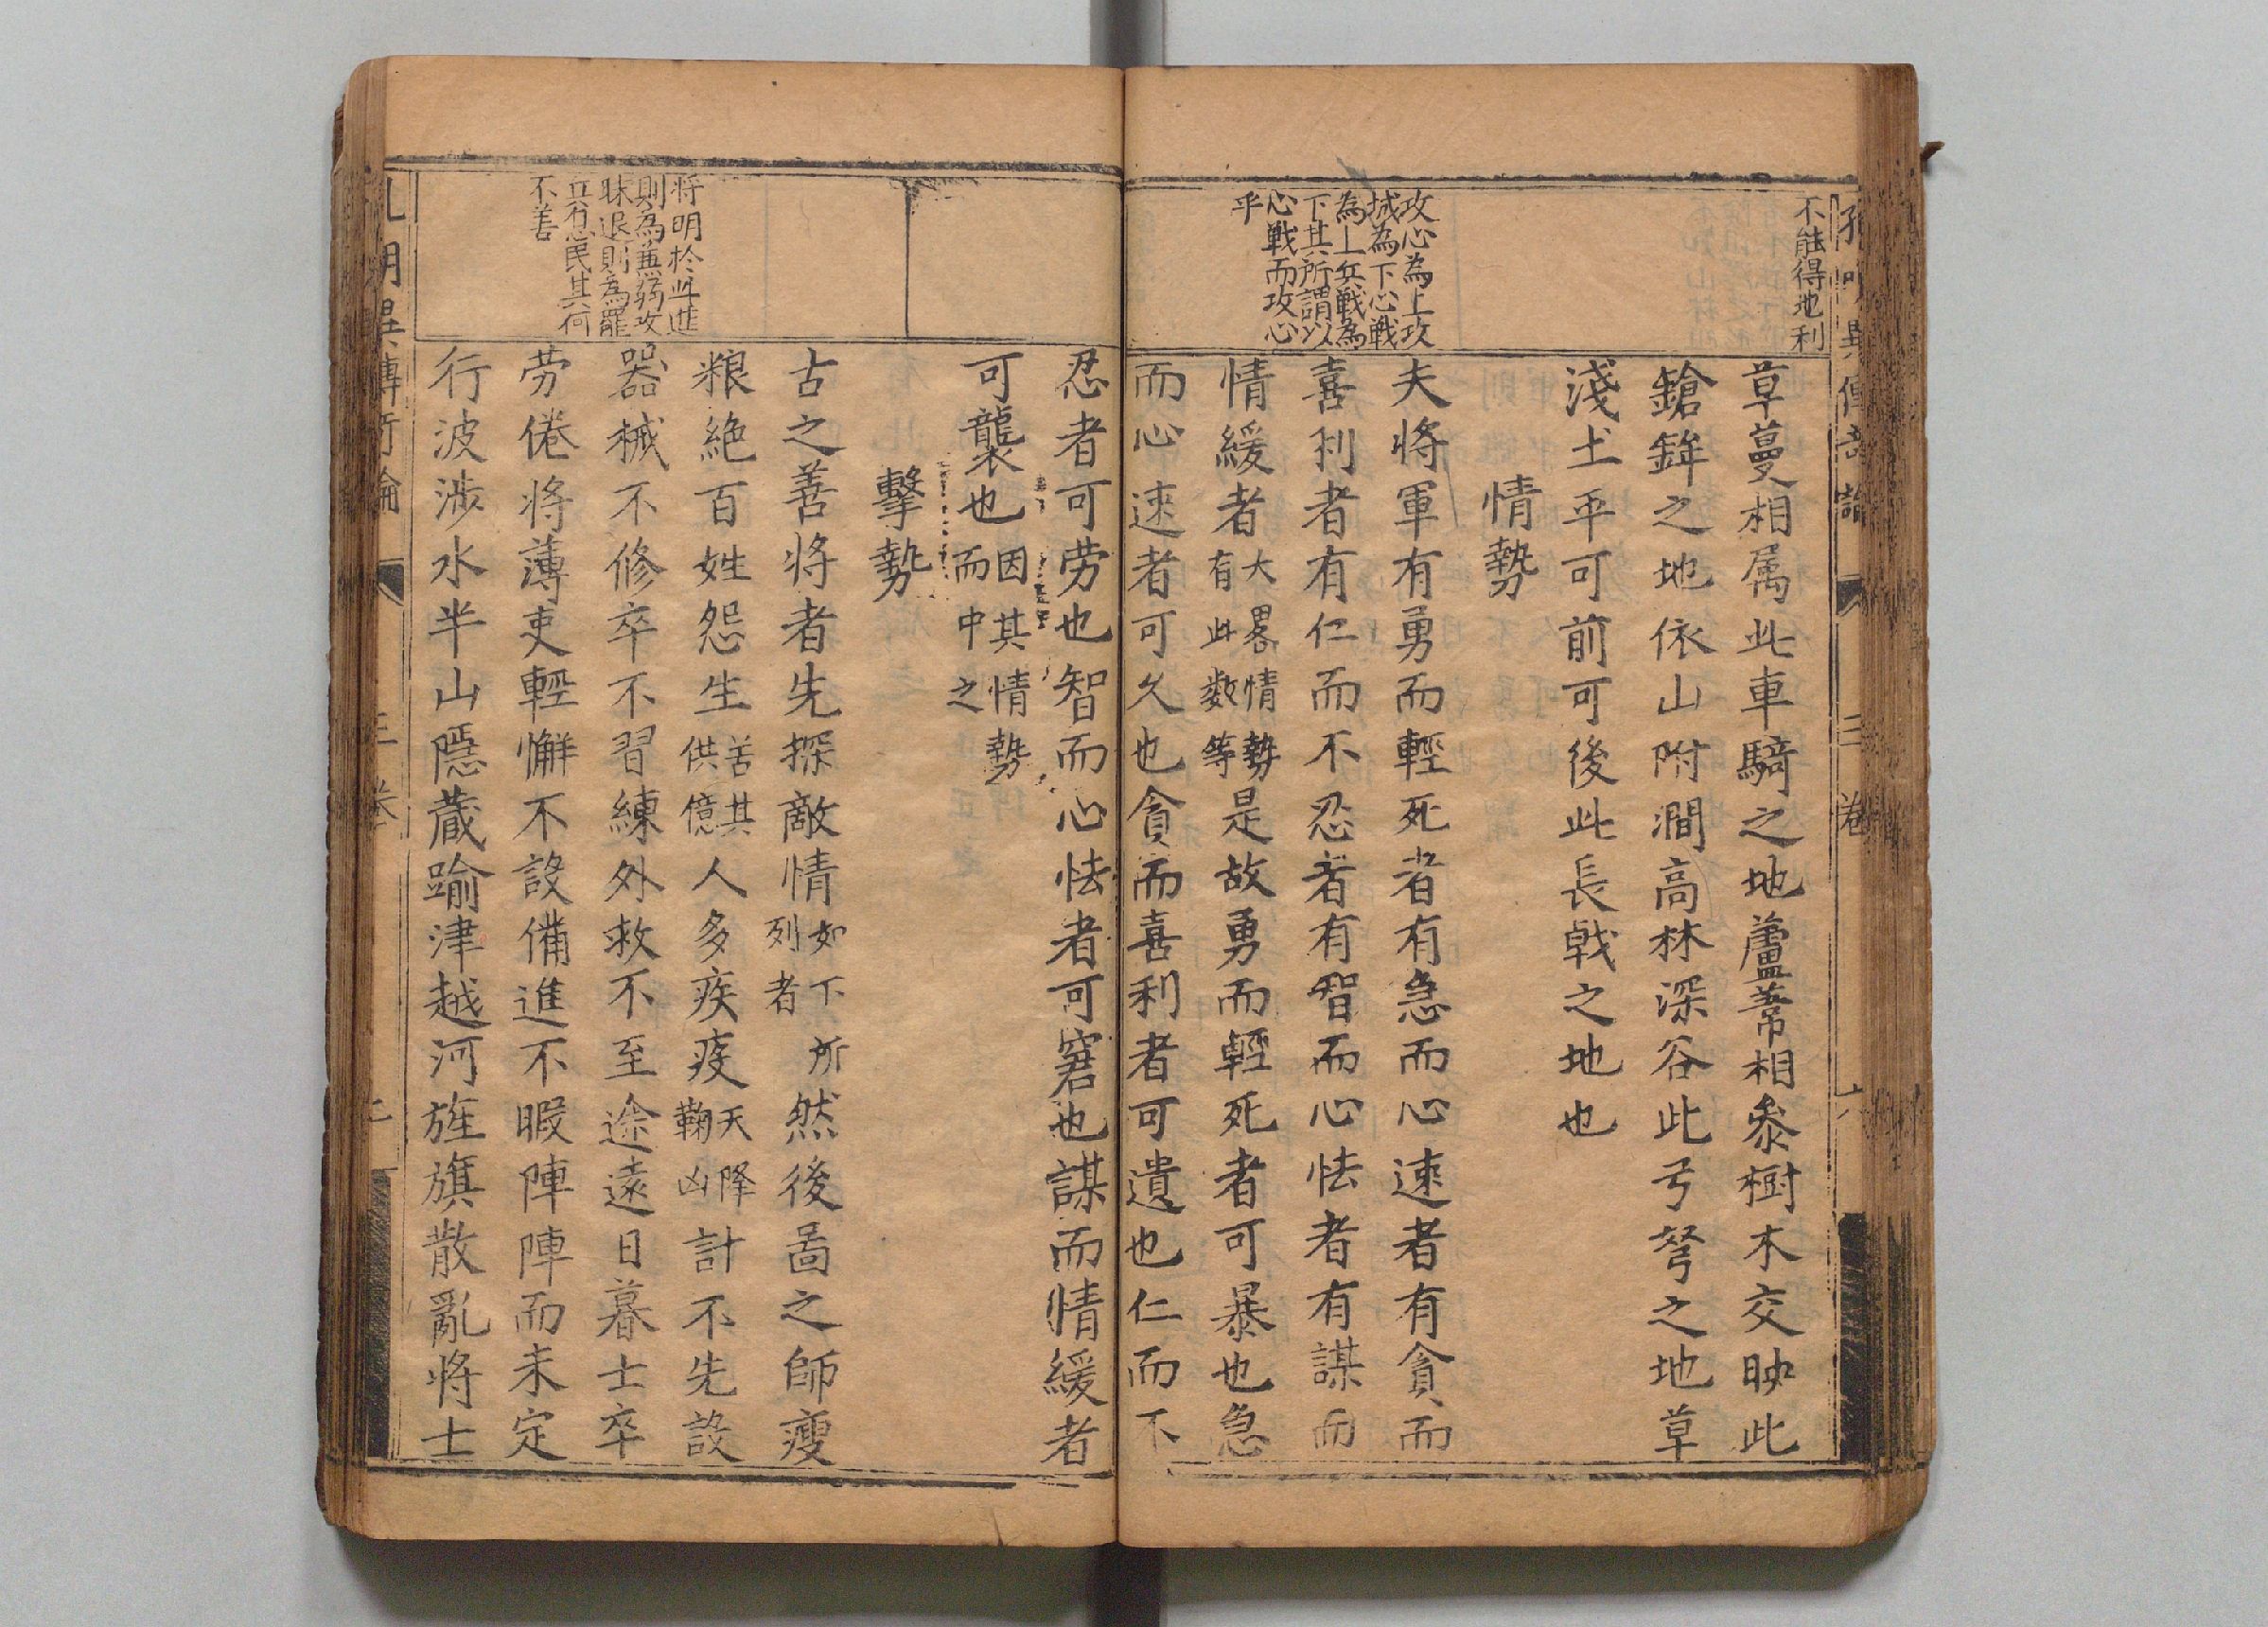 不能得地利
草蔓相属此車騎之地蘆葦相參樹木交映此
鎗鉾之地依山附澗高林深谷此弓弩之地草
淺土平可前可後此長戟之地也
情勢
攻心為上攻
城為下心戰
為上兵戰為
下其所謂以
心戰而攻心
乎
夫將軍有勇而輕死者有急而心速者有貪而
喜利者有仁而不忍者有智而心怯者有謀而
情緩者大畧情勢有此數等是故勇而輕死者可暴也急
而心速者可久也貪而喜利者可遺也仁而不
忍者可劳也智而心怯者可窘也謀而情緩者
可襲也因其情勢而中之
擊勢
古之善將者先探敵情如下所列者然後啚之師瘦
粮絶百姓怨生苦其供億人多疾疫天降鞠凶計不先設
将明於此進
則為兼弱攻
昧退則為罷
兵息民其何
不善
器械不修卒不習練外救不至途遠日暮士卒
劳倦将薄吏輕懈不設備進不暇陣陣而未定
行波涉水半山隱蔵踰津越河旌旗散亂将士